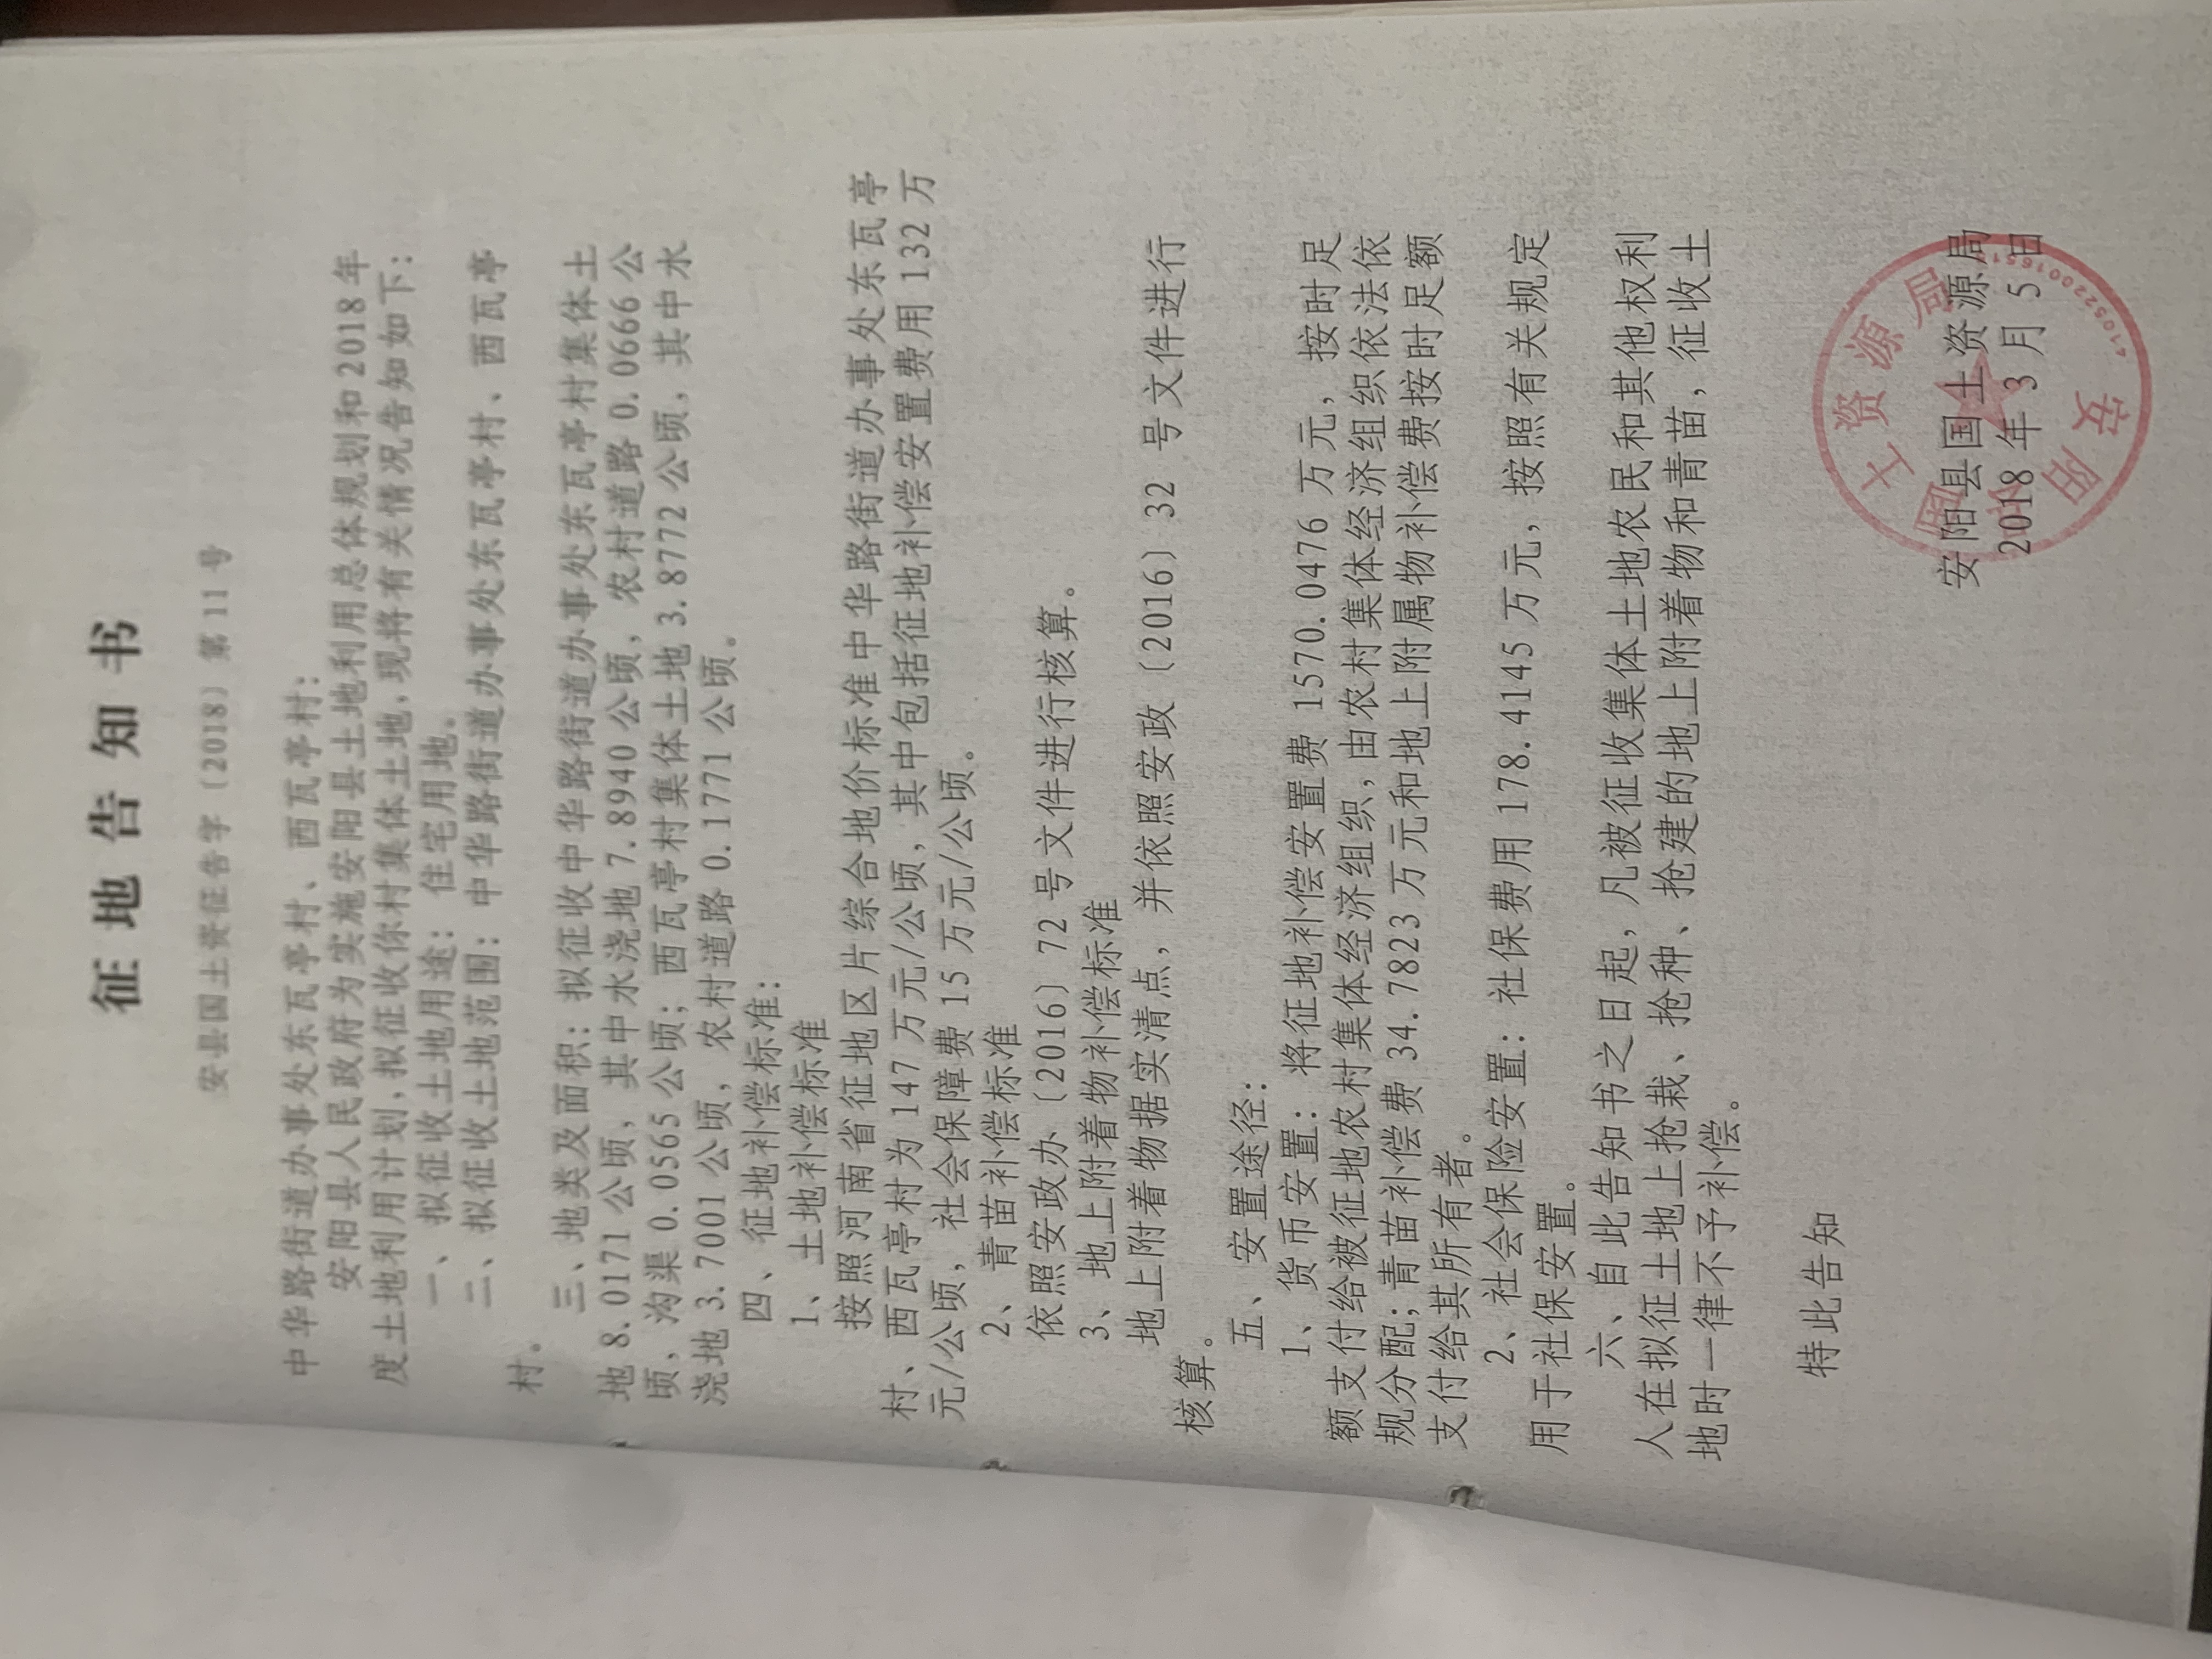 征地告知书
安县国土资征告字〔2018〕第11号
中华路街道办事处东瓦亭村、西瓦亭村：
安阳县人民政府为实施安阳县土地利用总体规划和2018年
度土地利用计划，拟征收你村集体土地，现将有关情况告知如下：
一、拟征收土地用途：住宅用地。
二、拟征收土地范围：中华路街道办事处东瓦亭村、西瓦亭
村。
三、地类及面积：拟征收中华路街道办事处东瓦亭村集体土
地8.0171公顷，其中水浇地7.8940公顷，农村道路0.0666公
顷，沟渠0.0565公顷；西瓦亭村集体土地3.8772公顷，其中水
浇地3.7001公顷，农村道路0.1771公顷。
四、征地补偿标准：
1、土地补偿标准
按照河南省征地区片综合地价标准中华路街道办事处东瓦亭
村、西瓦亭村为147万元/公顷，其中包括征地补偿安置费用132万
元/公顷，社会保障费15万元/公顷。
2、青苗补偿标准
依照安政办〔2016〕72号文件进行核算。
3、地上附着物补偿标准
地上附着物据实清点，并依照安政〔2016〕32号文件进行
核算。
五、安置途径：
1、货币安置：将征地补偿安置费1570.0476万元，按时足
额支付给被征地农村集体经济组织，由农村集体经济组织依法依
规分配；青苗补偿费34.7823万元和地上附属物补偿费按时足额
支付给其所有者。
2、社会保险安置：社保费用178.4145万元，按照有关规定
用于社保安置。
六、自此告知书之日起，凡被征收集体土地农民和其他权利
人在拟征土地上抢栽、抢种、抢建的地上附着物和青苗，征收土
地时一律不予补偿。
特此告知
安阳县国土资源局
2018年3月5日
安阳县国土资源局